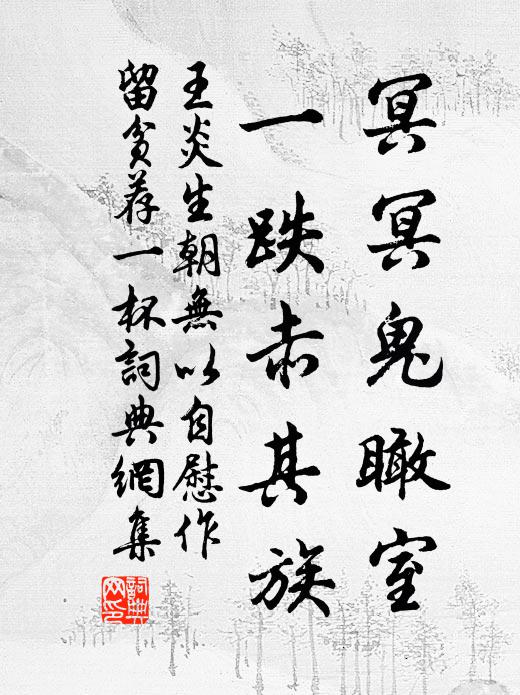 冥冥鬼瞰室
一跌赤其族
王炎生朝無以自慰作
留貧荐一杯詞典網集
詞典